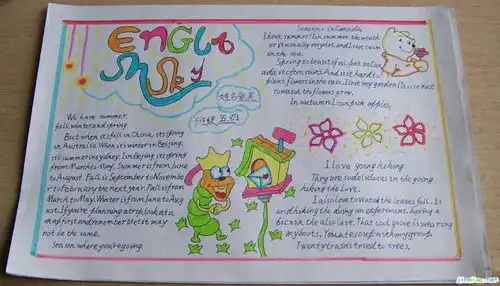 English Sky
姓名张昊
班级 五四
We have summer,
fall, winter and spring.
But when it's fall in China, it's spring
in Australia. When it is winter in Beijing,
it is summer in Sydney. In Beijing, it is spring
from March to May. Summer is from June
to August. Fall is September to November
to February the next year. Fall is from
March to May. Winter is from June to Aug
ust. If you're planning a trip, look at a
map first and remember that it may
not be the same.
Season where you're going.
Seasons in Canada
I love summer! In summer, the weath
er is usually
in the sea.
Spring is beautiful, but in Can
ada it often rains. And it is hard to
plant flowers in the rain. I love my garden. It is so nice
to watch the flowers grow.
In autumn I can pick apples.
I love going hiking
They are
hiking the love.
I also love to watch the leaves fall. Is
hiking the doing an experiment, having a
picnic the also love. That cool
my boots. with my group.
Twenty trains tried to trees.